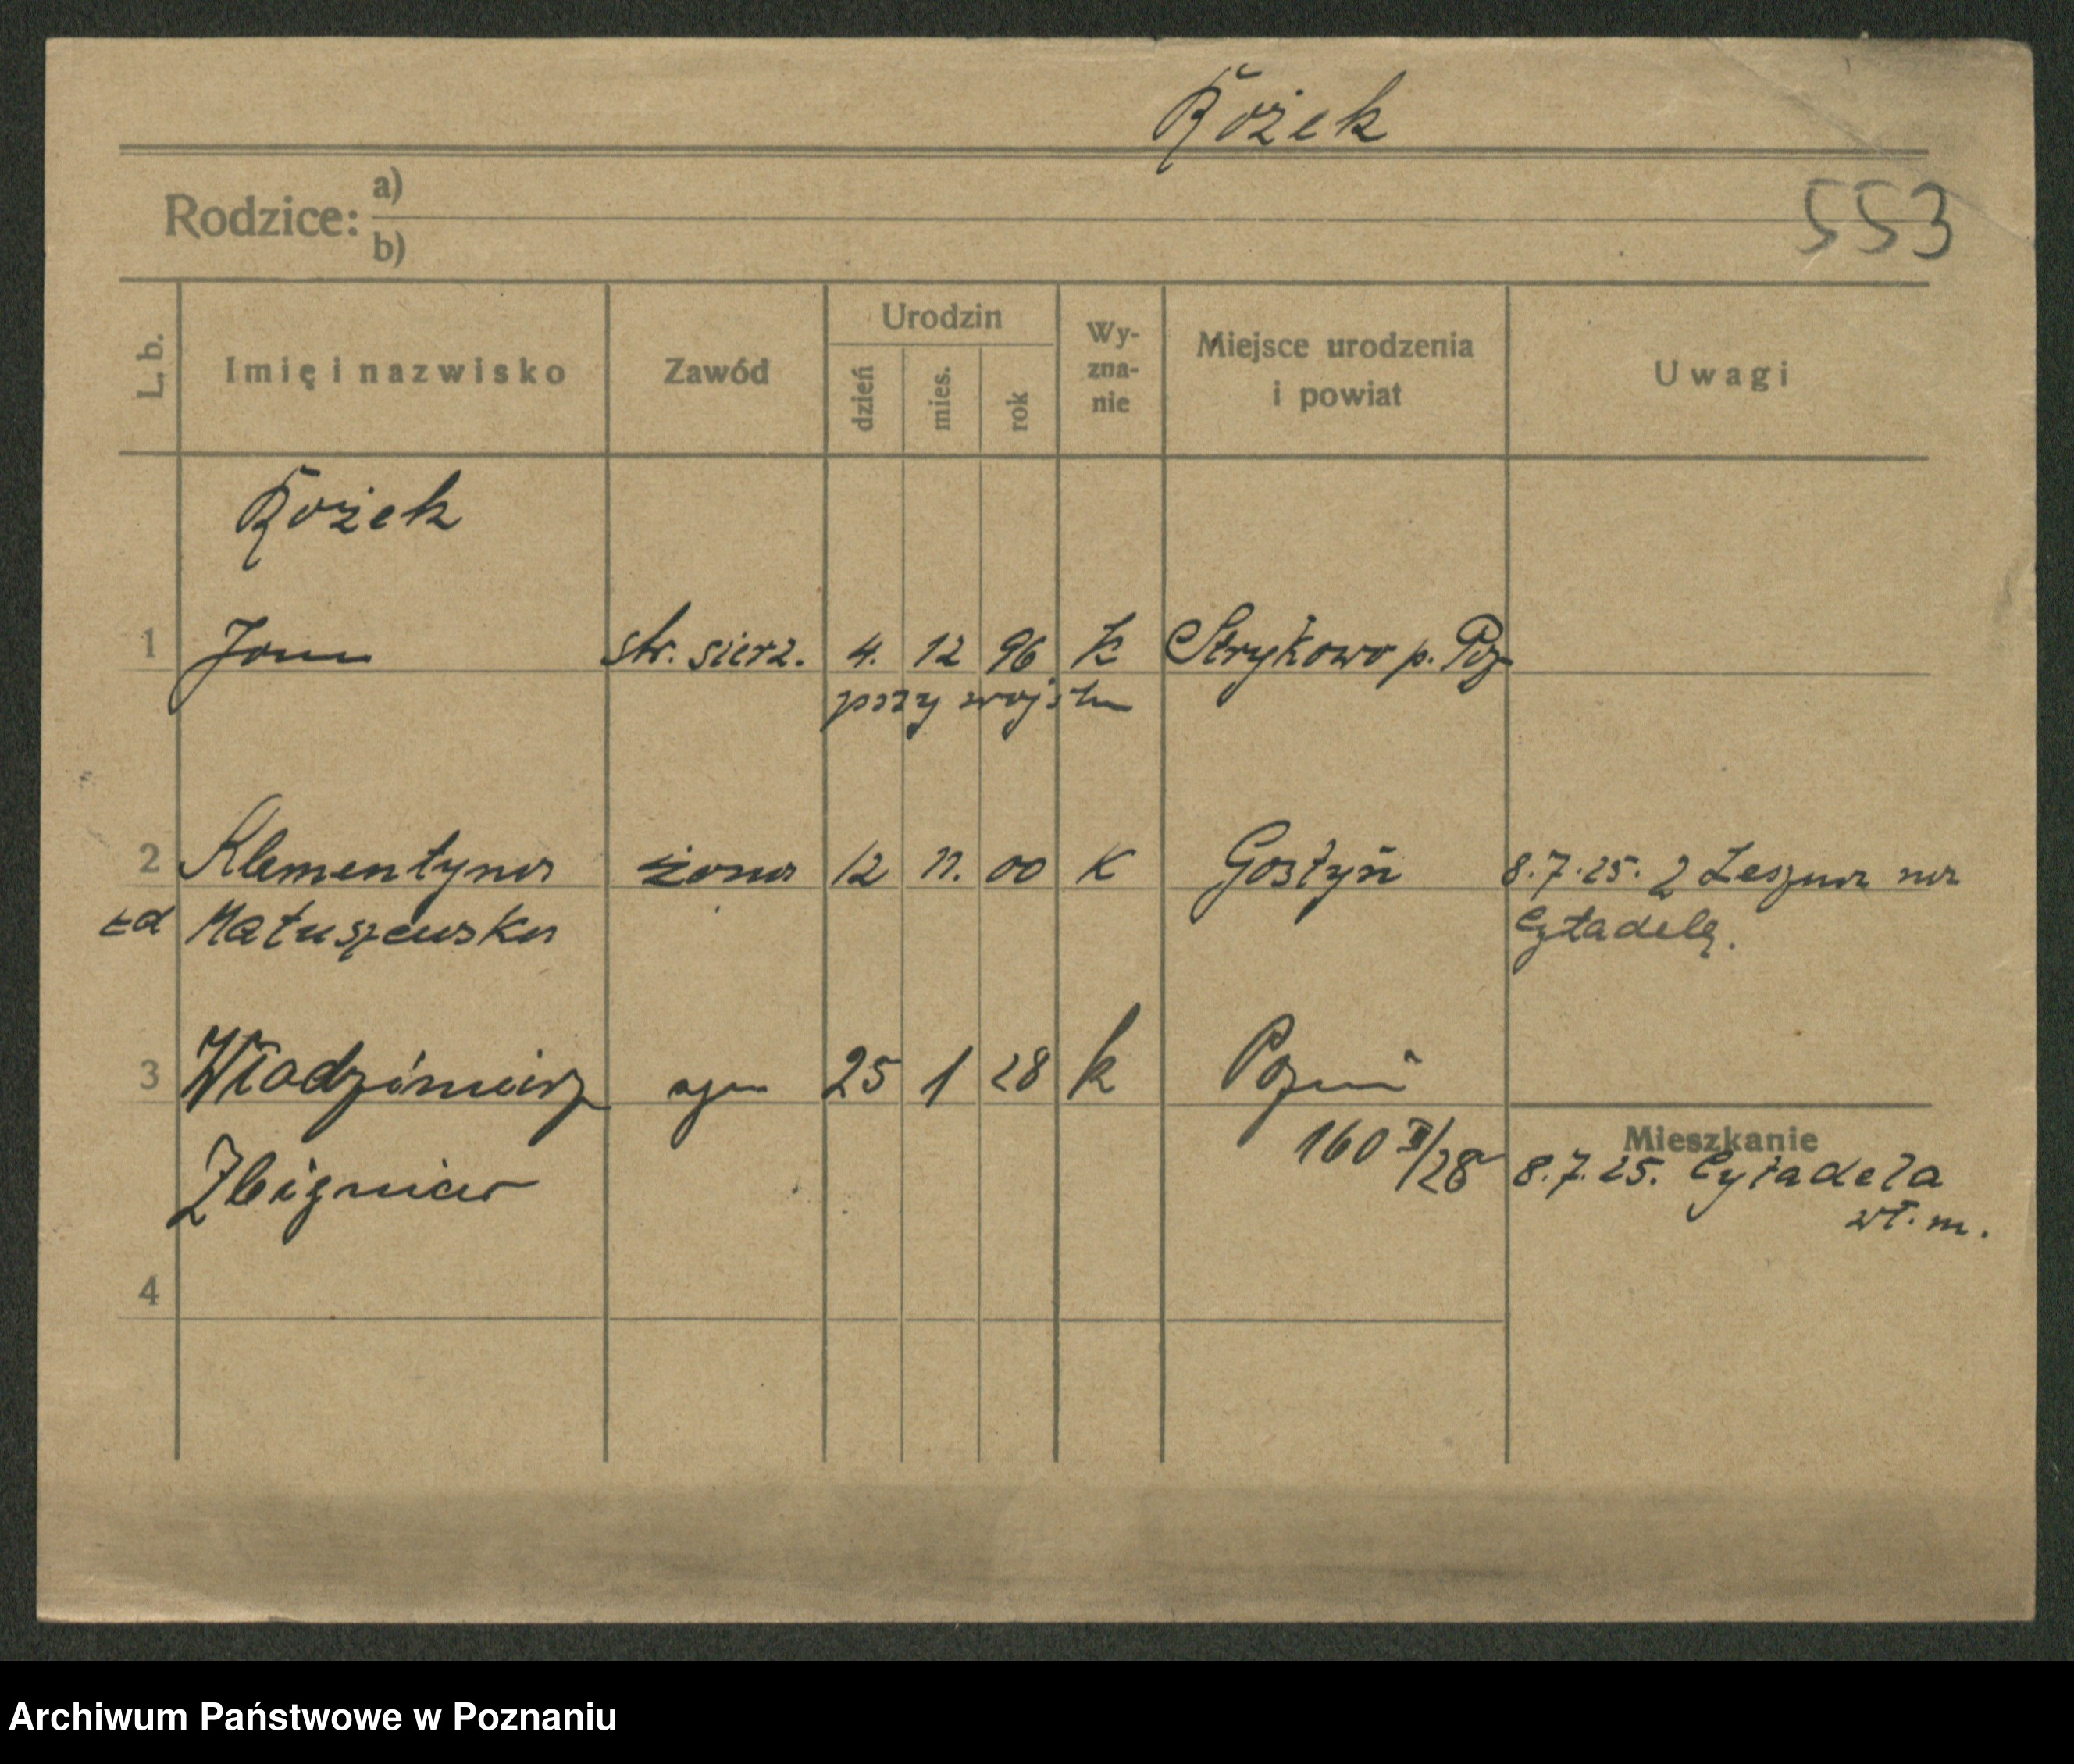 Rożek
Rodzice: a)
b)
553
L. b.
Imię i nazwisko
Zawód
Urodzin
dzień
mies.
rok
Wy-
zna-
nie
Miejsce urodzenia
i powiat
Uwagi
Rożek
1 Jan str. sierz. 4. 12 96 K Strykowo p. Poz
przy wojsku
2 Klementyna żona 12 11. 00 K Gostyń 8.7.25. z Leszna na
zd Matuszewska Cytadelę.
3 Włodzimierz syn 25 1 28 k Poznań
160 II/28
Zbigniew
Mieszkanie
8.7.25. Cytadela
wł. m.
4
Archiwum Państwowe w Poznaniu